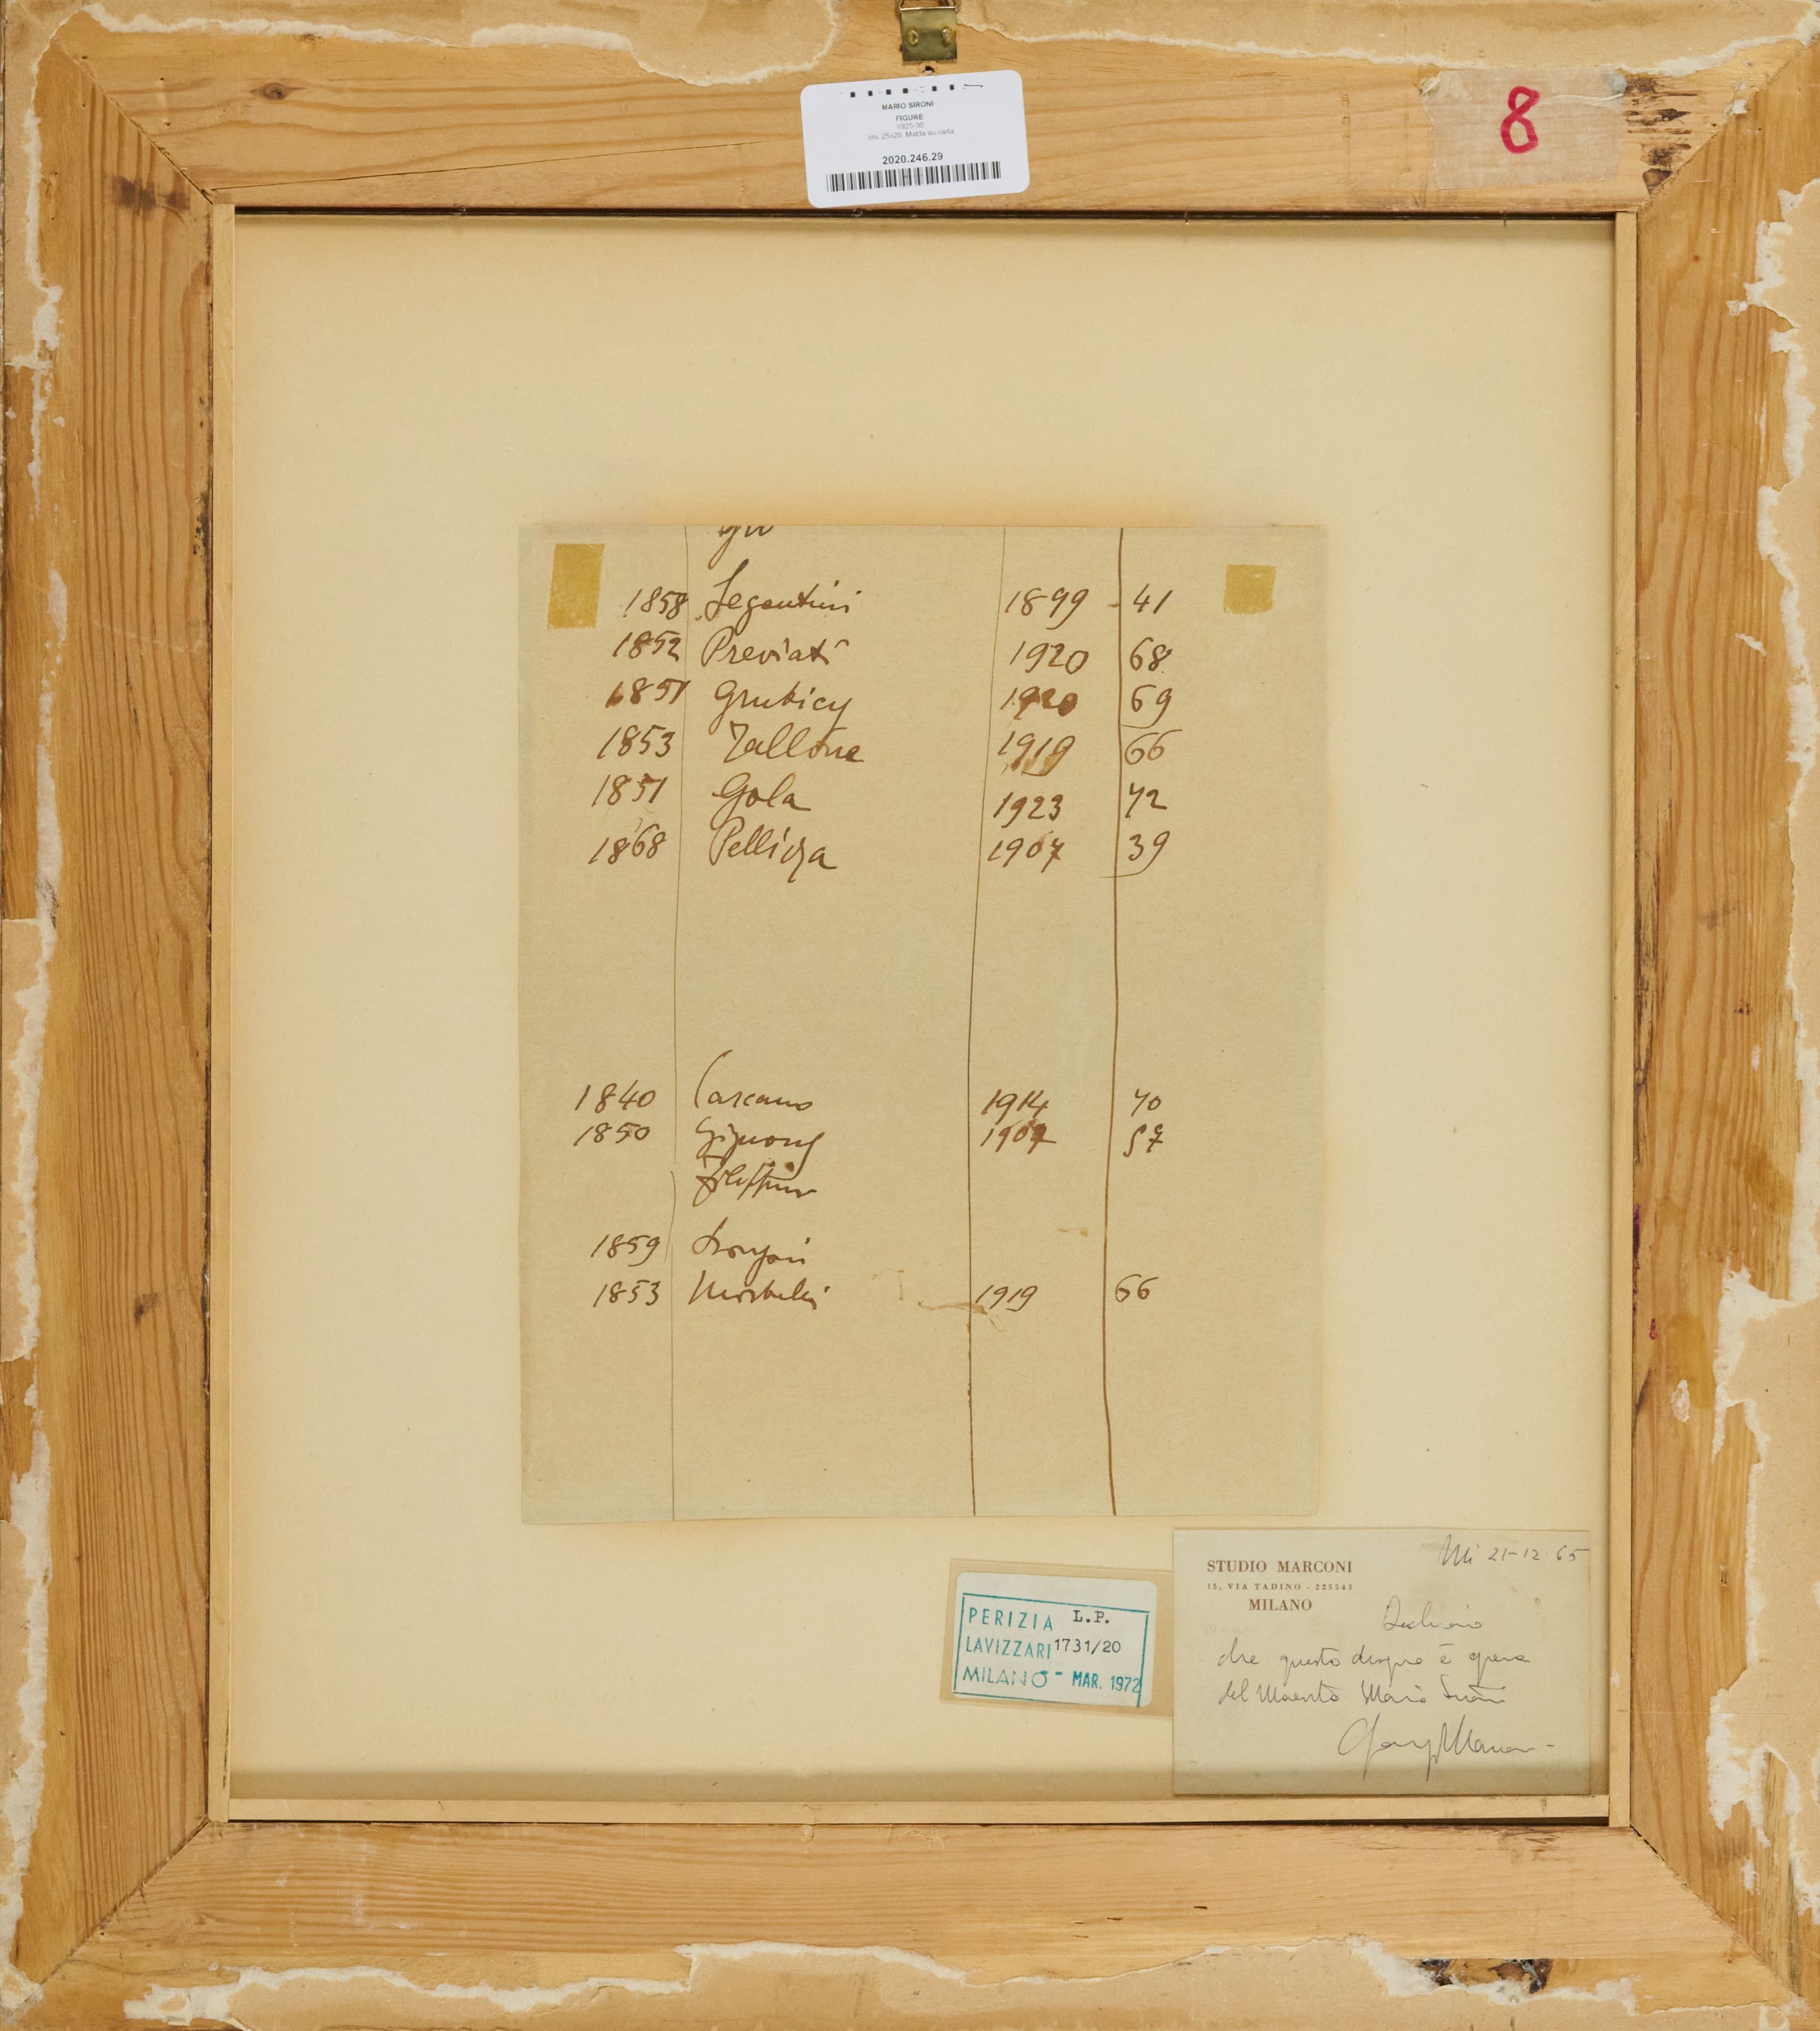 MARIO SIRONI
FIGURE
1925-30
cm. 25x20 Matita su carta
2020.246.29
8
1858 Segantini 1899 - 41
1852 Previati 1920 68
1851 Grubicy 1920 69
1853 Tallone 1919 66
1851 Gola 1923 72
1868 Pellizza 1907 39
1840 Carcano 1914 70
1850 Gignous 1907 57
Filippini
1859 Longoni
1853 Morbelli 1919 66
Mi 21-12-65
STUDIO MARCONI
15, VIA TADINO - 225543
MILANO
Dichiaro
che questo disegno è opera
del Maestro Mario Sironi
PERIZIA L.P.
LAVIZZARI 1731/20
MILANO - MAR. 1972